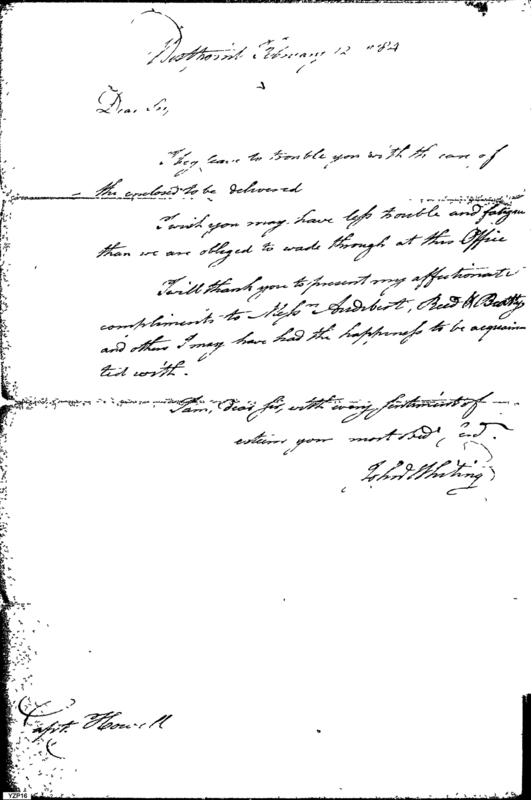 Westpoint February 12 1784
Dear Sir,
I beg leave to trouble you with the care of
the enclosed to be delivered
I wish you may have less trouble and fatigue
than we are obliged to wade through at this Office
I will thank you to present my affectionate
compliments to Messrs Audibert, Read & Beatty
and others I may have had the happiness to be acquain
ted with.
I am, dear Sir, with every sentiment of
esteem your most Obedt
John Whiting
Capt. Howell
YZP16